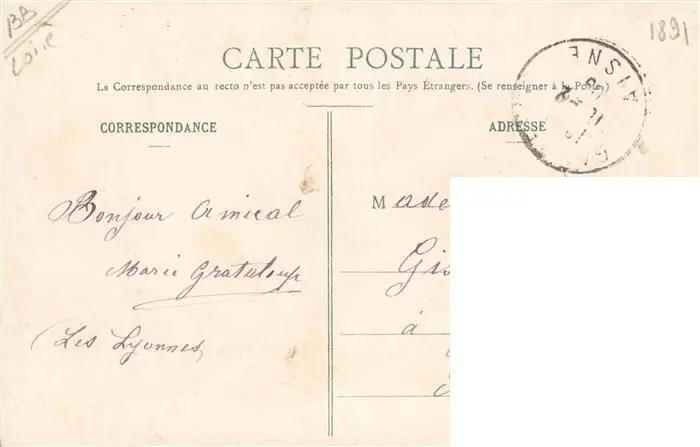 BB
Loire
1891
CARTE POSTALE
La Correspondance au recto n'est pas acceptée par tous les Pays Étrangers. (Se renseigner à la Poste.)
CORRESPONDANCE
Bonjour Amical
Marie Grateloup
(Les Lyonnes)
ADRESSE
AISNE
Made
Gis
à